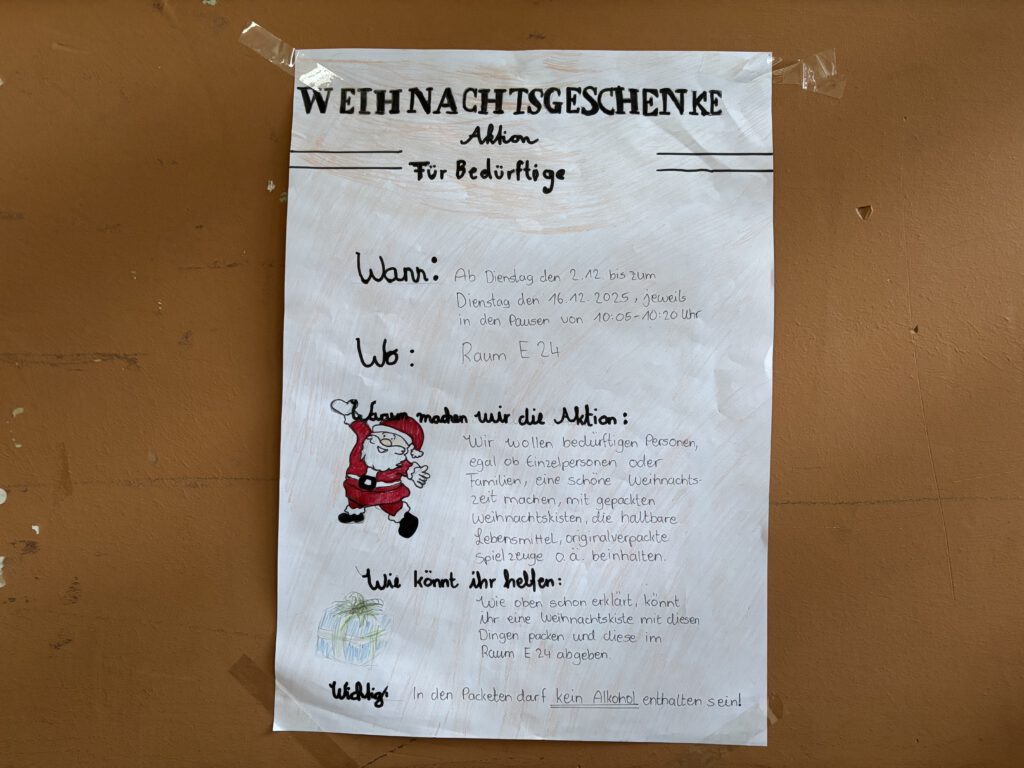 WEIHNACHTSGESCHENKE
Aktion
Für Bedürftige
Wann: Ab Dienstag den 2.12. bis zum
Dienstag den 16.12.2025, jeweils
in den Pausen von 10:05-10:20 Uhr
Wo: Raum E 24
Warum machen wir die Aktion:
Wir wollen bedürftigen Personen,
egal ob Einzelpersonen oder
Familien, eine schöne Weihnachts-
zeit machen, mit gepackten
Weihnachtskisten, die haltbare
Lebensmittel, originalverpackte
Spielzeuge o.ä. beinhalten.
Wie könnt ihr helfen:
Wie oben schon erklärt, könnt
ihr eine Weihnachtskiste mit diesen
Dingen packen und diese im
Raum E 24 abgeben.
Wichtig: In den Packeten darf kein Alkohol enthalten sein!